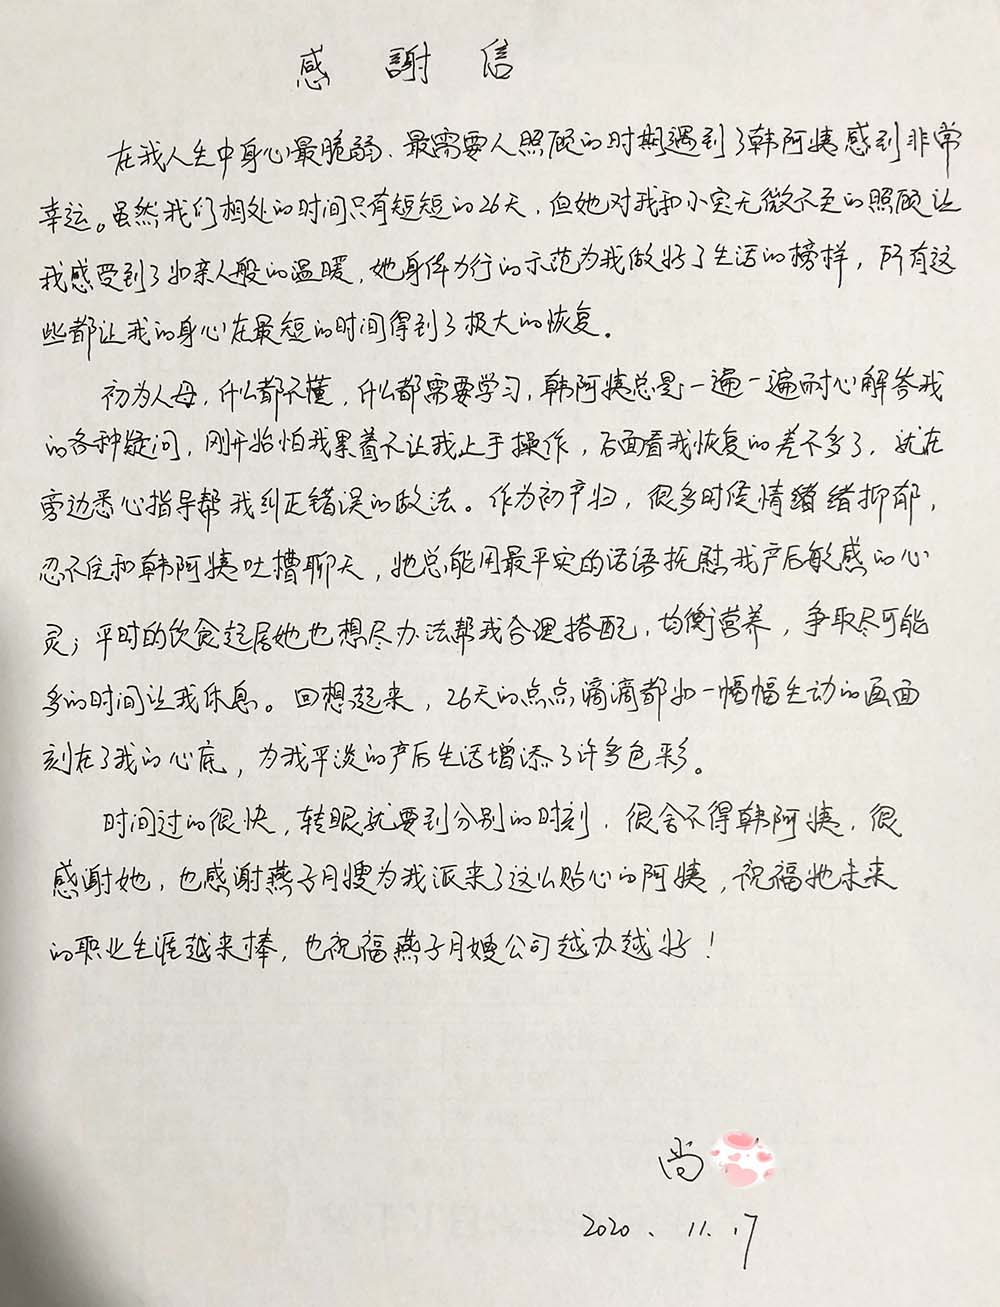 感 謝 信
在我人生中身心最脆弱、最需要人照顾的时期遇到了韩阿姨感到非常
幸运。虽然我们相处的时间只有短短的26天，但她对我和小宝无微不至的照顾让
我感受到了如亲人般的温暖，她身体力行的示范为我做好了生活的榜样，所有这
些都让我的身心在最短的时间得到了极大的恢复。
初为人母，什么都不懂，什么都需要学习，韩阿姨总是一遍一遍耐心解答我
的各种疑问，刚开始怕我累着不让我上手操作，后面看我恢复的差不多了，就在
旁边悉心指导帮我纠正错误的做法。作为初产妇，很多时候情绪绪抑郁，
忍不住和韩阿姨吐槽聊天，她总能用最平实的话语抚慰我产后敏感的心
灵；平时的饮食起居她也想尽办法帮我合理搭配，均衡营养，争取尽可能
多的时间让我休息。回想起来，26天的点点滴滴都如一幅幅生动的画面
刻在了我的心底，为我平淡的产后生活增添了许多色彩。
时间过的很快，转眼就要到分别的时刻，很舍不得韩阿姨，很
感谢她，也感谢燕子月嫂为我派来了这么贴心的阿姨，祝福她未来
的职业生涯越来棒，也祝福燕子月嫂公司越办越好！
尚
2020.11.17